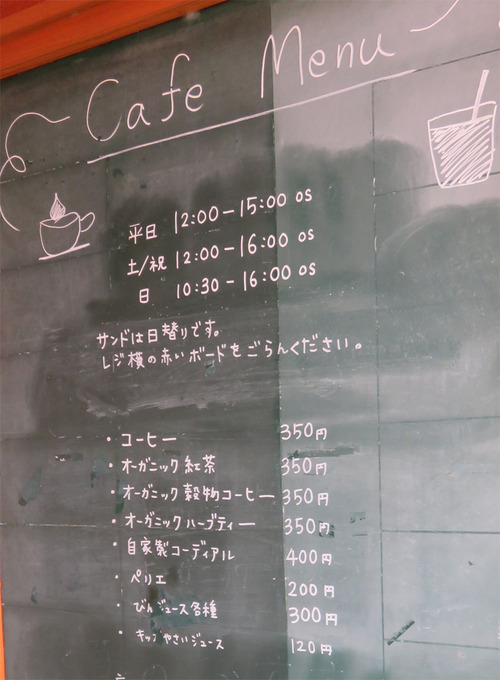 Cafe Menu
平日 12:00-15:00 os
土/祝 12:00-16:00 os
日 10:30-16:00 os
サンドは日替りです。
レジ横の赤いボードをごらんください。
・コーヒー 350円
・オーガニック紅茶 350円
・オーガニック穀物コーヒー 350円
・オーガニックハーブティー 350円
・自家製コーディアル 400円
・ペリエ 200円
・びんジュース各種 300円
・キッズやさいジュース 120円